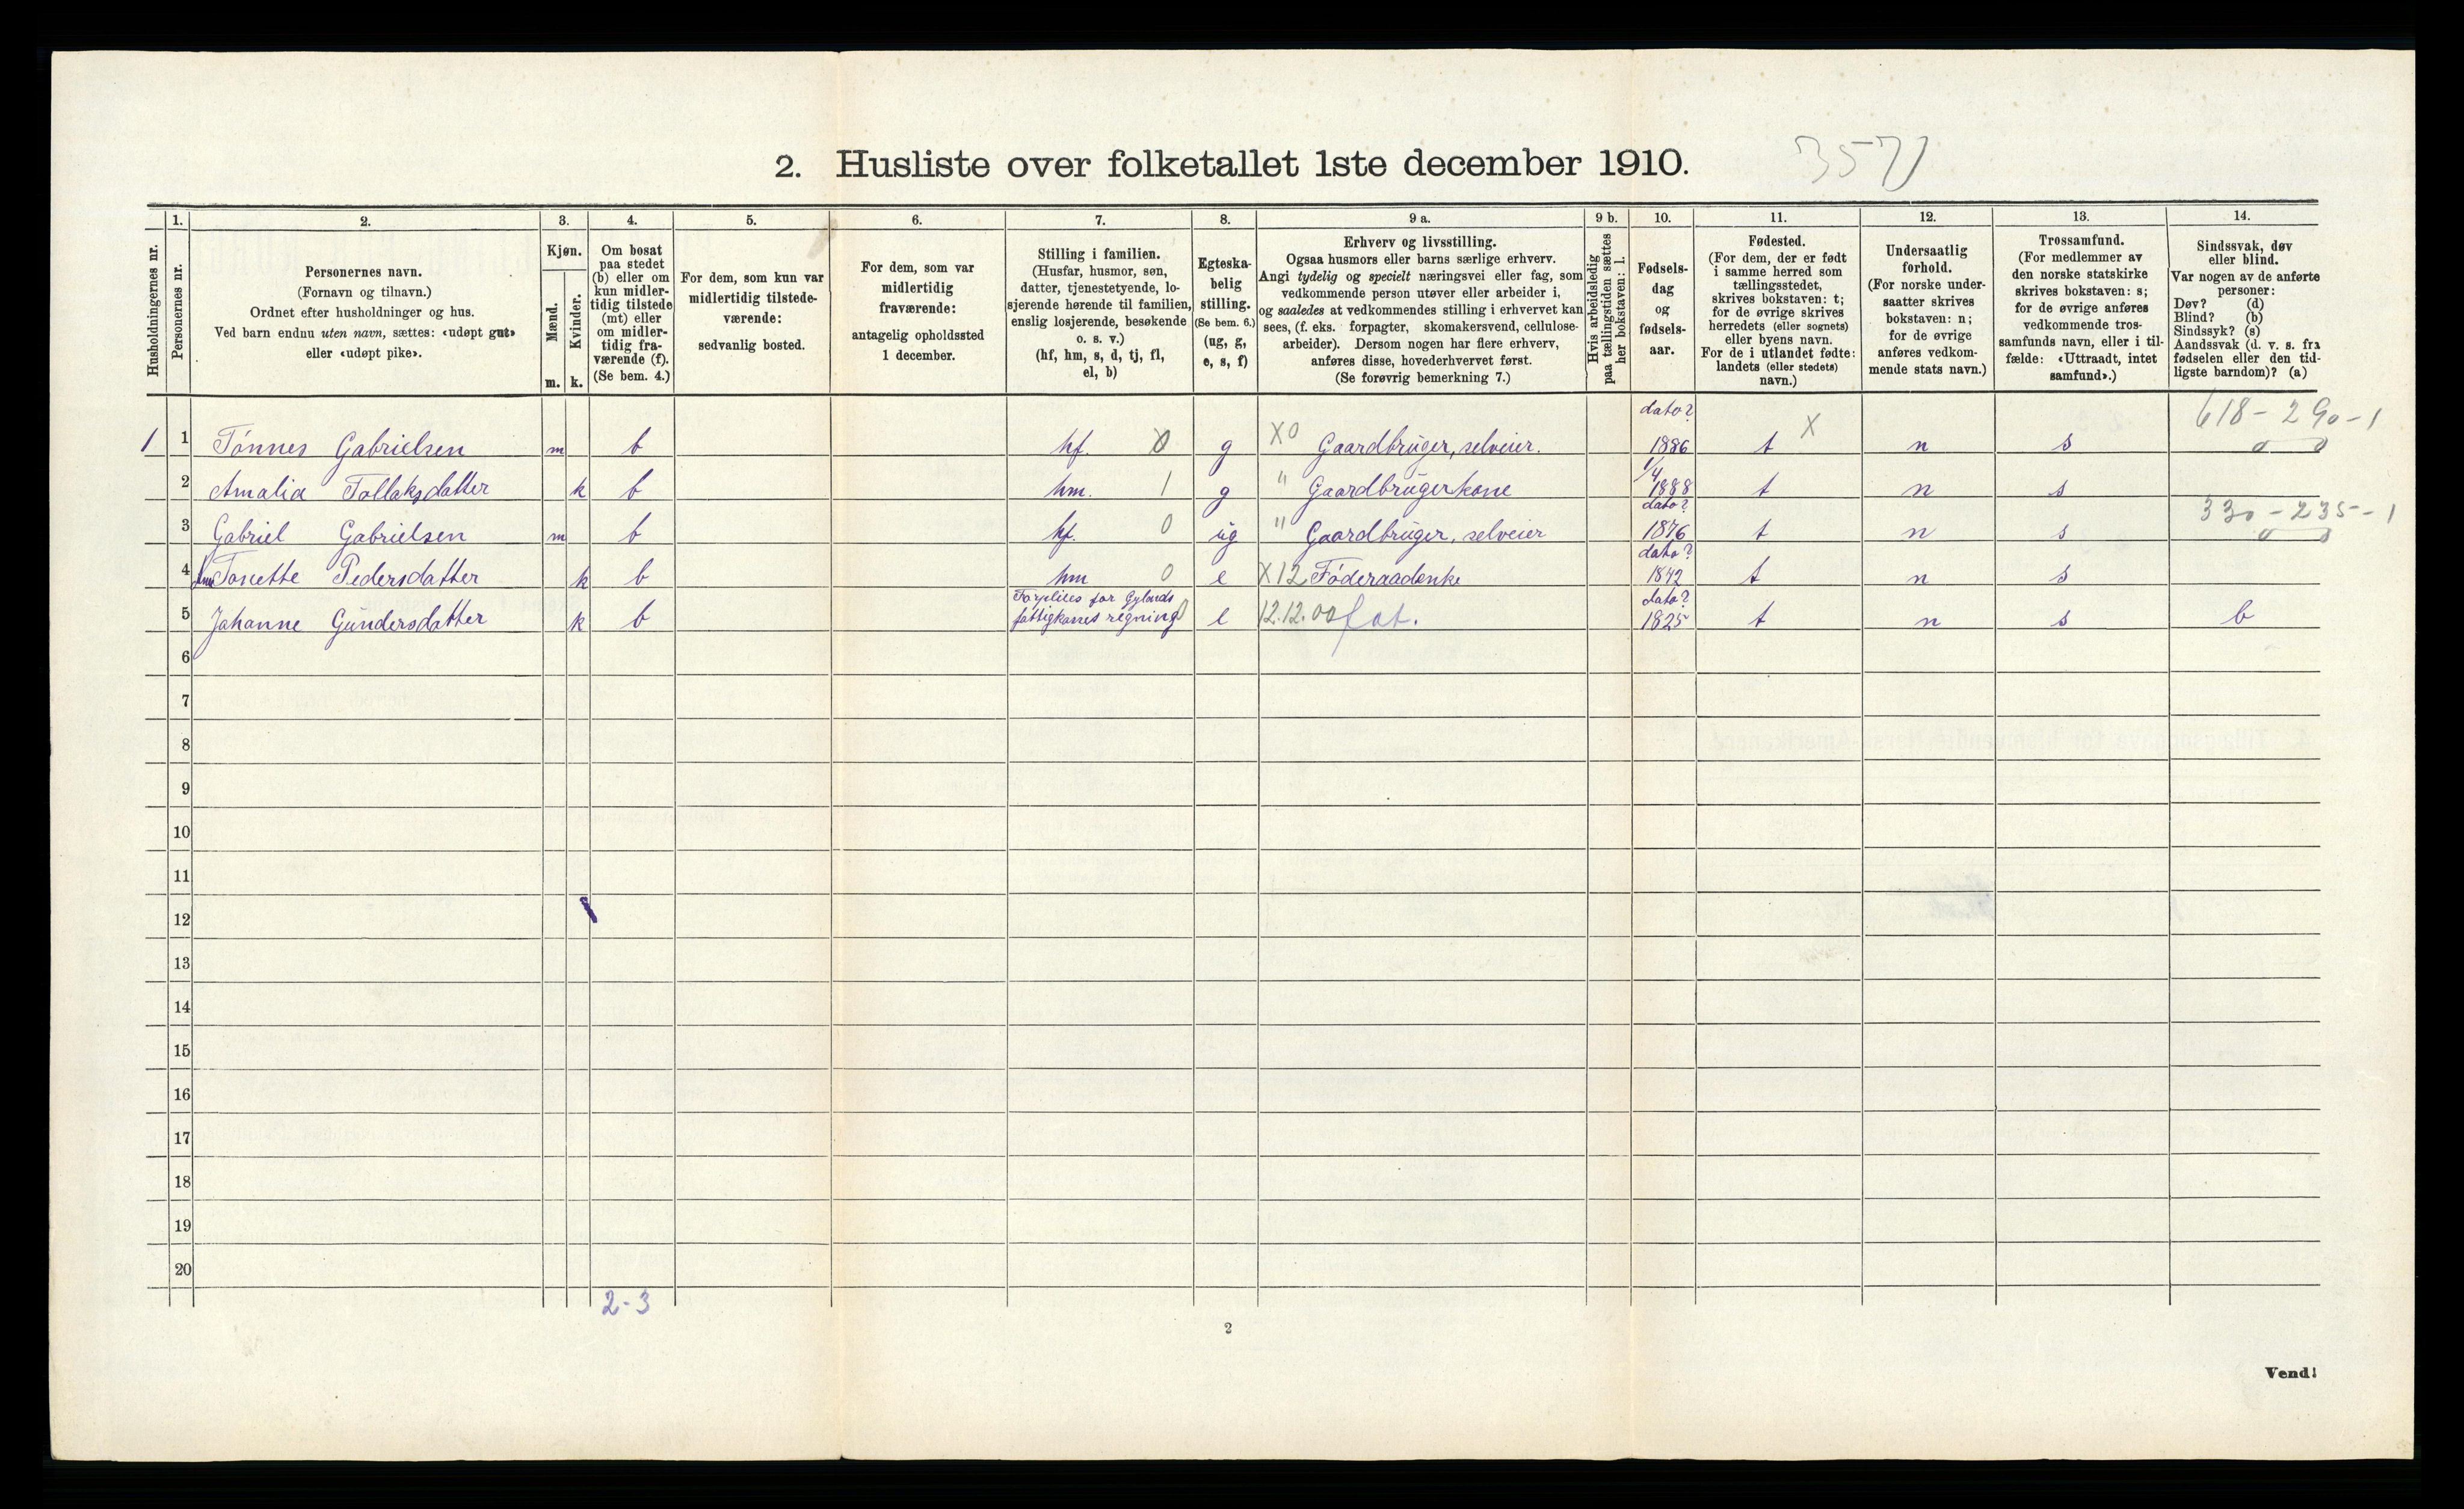 2. Husliste over folketallet 1ste december 1910.
357
1. 2. 3. 4. 5. 6. 7. 8. 9 a. 9 b. 10. 11. 12. 13. 14.
Husholdningernes nr.
Personernes nr.
Personernes navn.
(Fornavn og tilnavn.)
Ordnet efter husholdninger og hus.
Ved barn endnu uten navn, sættes: «udøpt gut»
eller «udøpt pike».
Kjøn.
Mænd.
Kvinder.
m. k.
Om bosat
paa stedet
(b) eller om
kun midler-
tidig tilstede
(mt) eller
om midler-
tidig fra-
værende (f).
(Se bem. 4.)
For dem, som kun var
midlertidig tilstede-
værende:
sedvanlig bosted.
For dem, som var
midlertidig
fraværende:
antagelig opholdssted
1 december.
Stilling i familien.
(Husfar, husmor, søn,
datter, tjenestetyende, lo-
sjerende hørende til familien,
enslig losjerende, besøkende
o. s. v.)
(hf, hm, s, d, tj, fl,
el, b)
Egteska-
belig
stilling.
(Se bem. 6.)
(ug, g,
e, s, f)
Erhverv og livsstilling.
Ogsaa husmors eller barns særlige erhverv.
Angi tydelig og specielt næringsvei eller fag, som
vedkommende person utøver eller arbeider i,
og saaledes at vedkommendes stilling i erhvervet kan
sees, (f. eks. forpagter, skomakersvend, cellulose-
arbeider). Dersom nogen har flere erhverv,
anføres disse, hovederhvervet først.
(Se forøvrig bemerkning 7.)
Hvis arbeidsledig
paa tællingstiden sættes
her bokstaven: l.
Fødsels-
dag
og
fødsels-
aar.
Fødested.
(For dem, der er født
i samme herred som
tællingsstedet,
skrives bokstaven: t;
for de øvrige skrives
herredets (eller sognets)
eller byens navn.
For de i utlandet fødte:
landets (eller stedets)
navn.)
Undersaatlig
forhold.
(For norske under-
saatter skrives
bokstaven: n;
for de øvrige
anføres vedkom-
mende stats navn.)
Trossamfund.
(For medlemmer av
den norske statskirke
skrives bokstaven: s;
for de øvrige anføres
vedkommende tros-
samfunds navn, eller i til-
fælde: «Uttraadt, intet
samfund».)
Sindssvak, døv
eller blind.
Var nogen av de anførte
personer:
Døv? (d)
Blind? (b)
Sindssyk? (s)
Aandssvak (d. v. s. fra
fødselen eller den tid-
ligste barndom)? (a)
dato? 618-290-1
1 1 Tønnes Gabrielsen m b hf. 0 g X0 Gaardbruger, selveier. 1886 t X n s
1/4
2 Amalia Tollaksdatter k b hm. 1 g " Gaardbrugerkone 1888 t n s
dato? 330-235-1
3 Gabriel Gabrielsen m b hf. 0 ug " Gaardbruger, selveier 1876 t n s
dato?
4 Tonette Pedersdatter k b hm 0 e X12 Føderaadenke 1842 t n s
Forpleies for Gylands dato?
5 Johanne Gundersdatter k b fattigkasses regning 0 e 12.12.00 fat. 1825 t n s b
6
7
8
9
10
11
12
13
14
15
16
17
18
19
20
2-3
2
Vend!